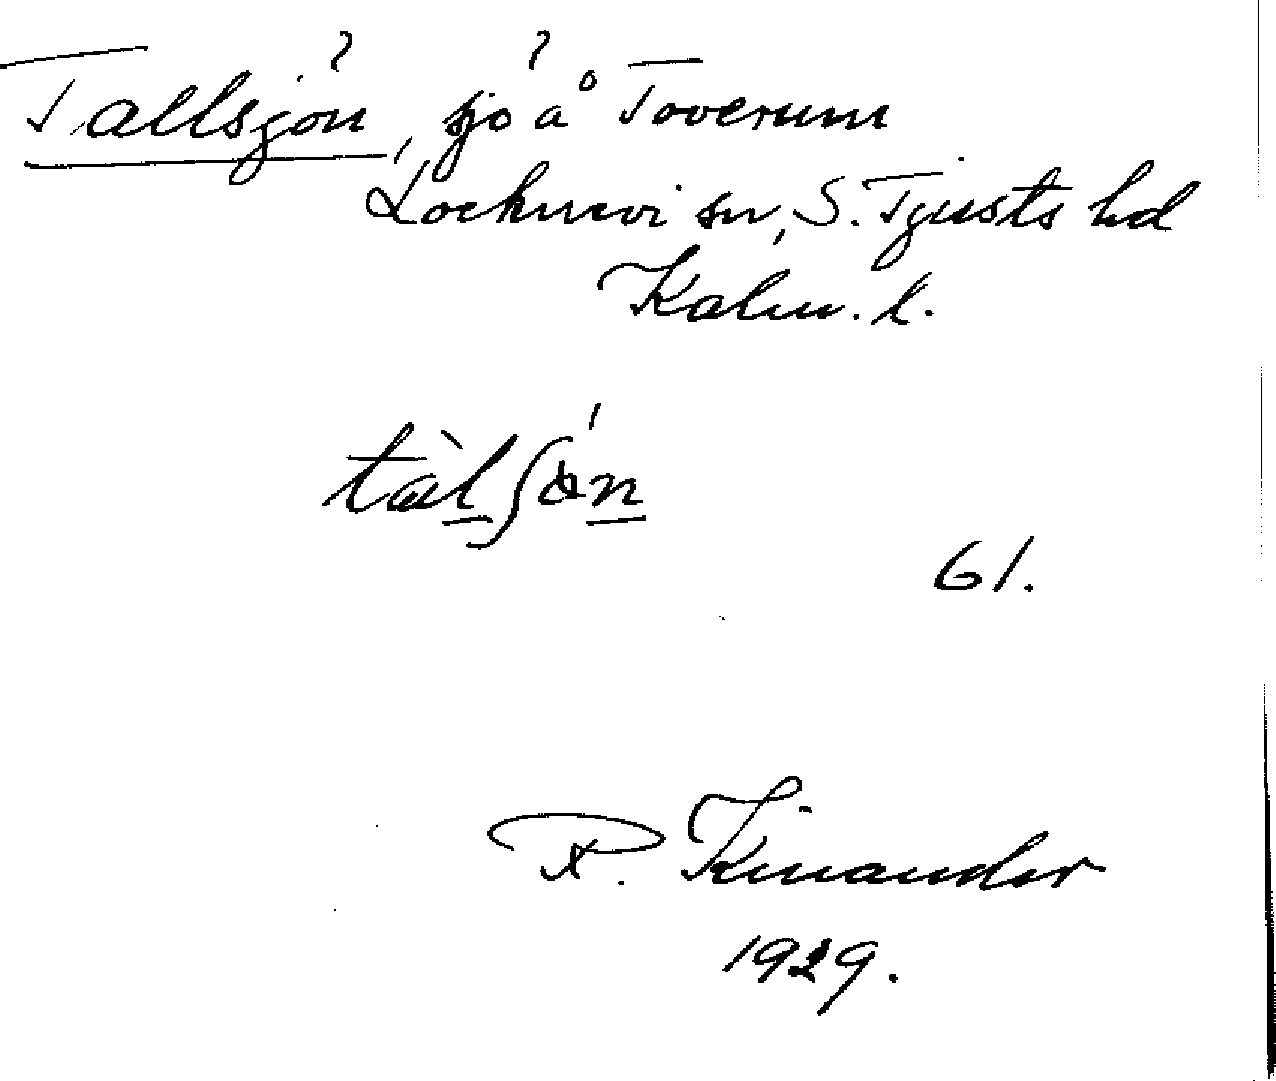 Tallsjön, sjö å Toverum
Locknevi sn, S. Tjusts hd
Kalm. l.
tàlʃǿn
61.
R. Kinander
1929.